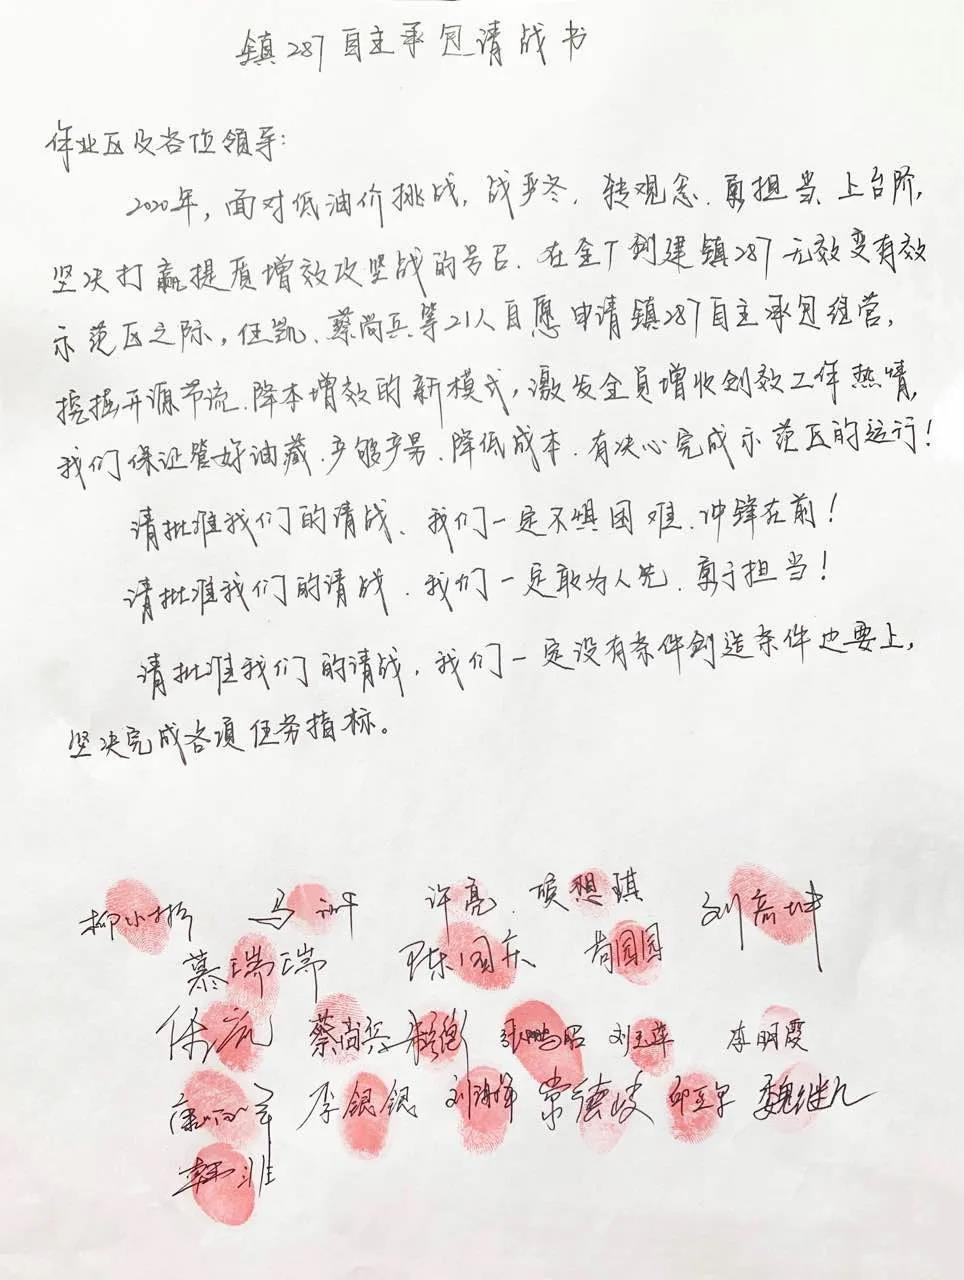 镇287自主承包请战书
作业区及各位领导:
2020年,面对低油价挑战,战严冬、转观念、勇担当、上台阶,
坚决打赢提质增效攻坚战的号召、在全厂创建镇287无效变有效
示范区之际,任凯、蔡尚兵等21人自愿申请镇287自主承包经营,
挖掘开源节流、降本增效的新模式,激发全员增收创效工作热情,
我们保证管好油藏、产够产量、降低成本、有决心完成示范区的运行!
请批准我们的请战、我们一定不惧困难、冲锋在前!
请批准我们的请战、我们一定敢为人先、勇于担当!
请批准我们的请战,我们一定没有条件创造条件也要上,
坚决完成各项任务指标。
许亮 吴想琪
慕瑞瑞 陈国庆 苟园园
蔡尚兵 张鹏昭 刘玉萍 李明霞
李银银 常德岐 魏继九
韩淮